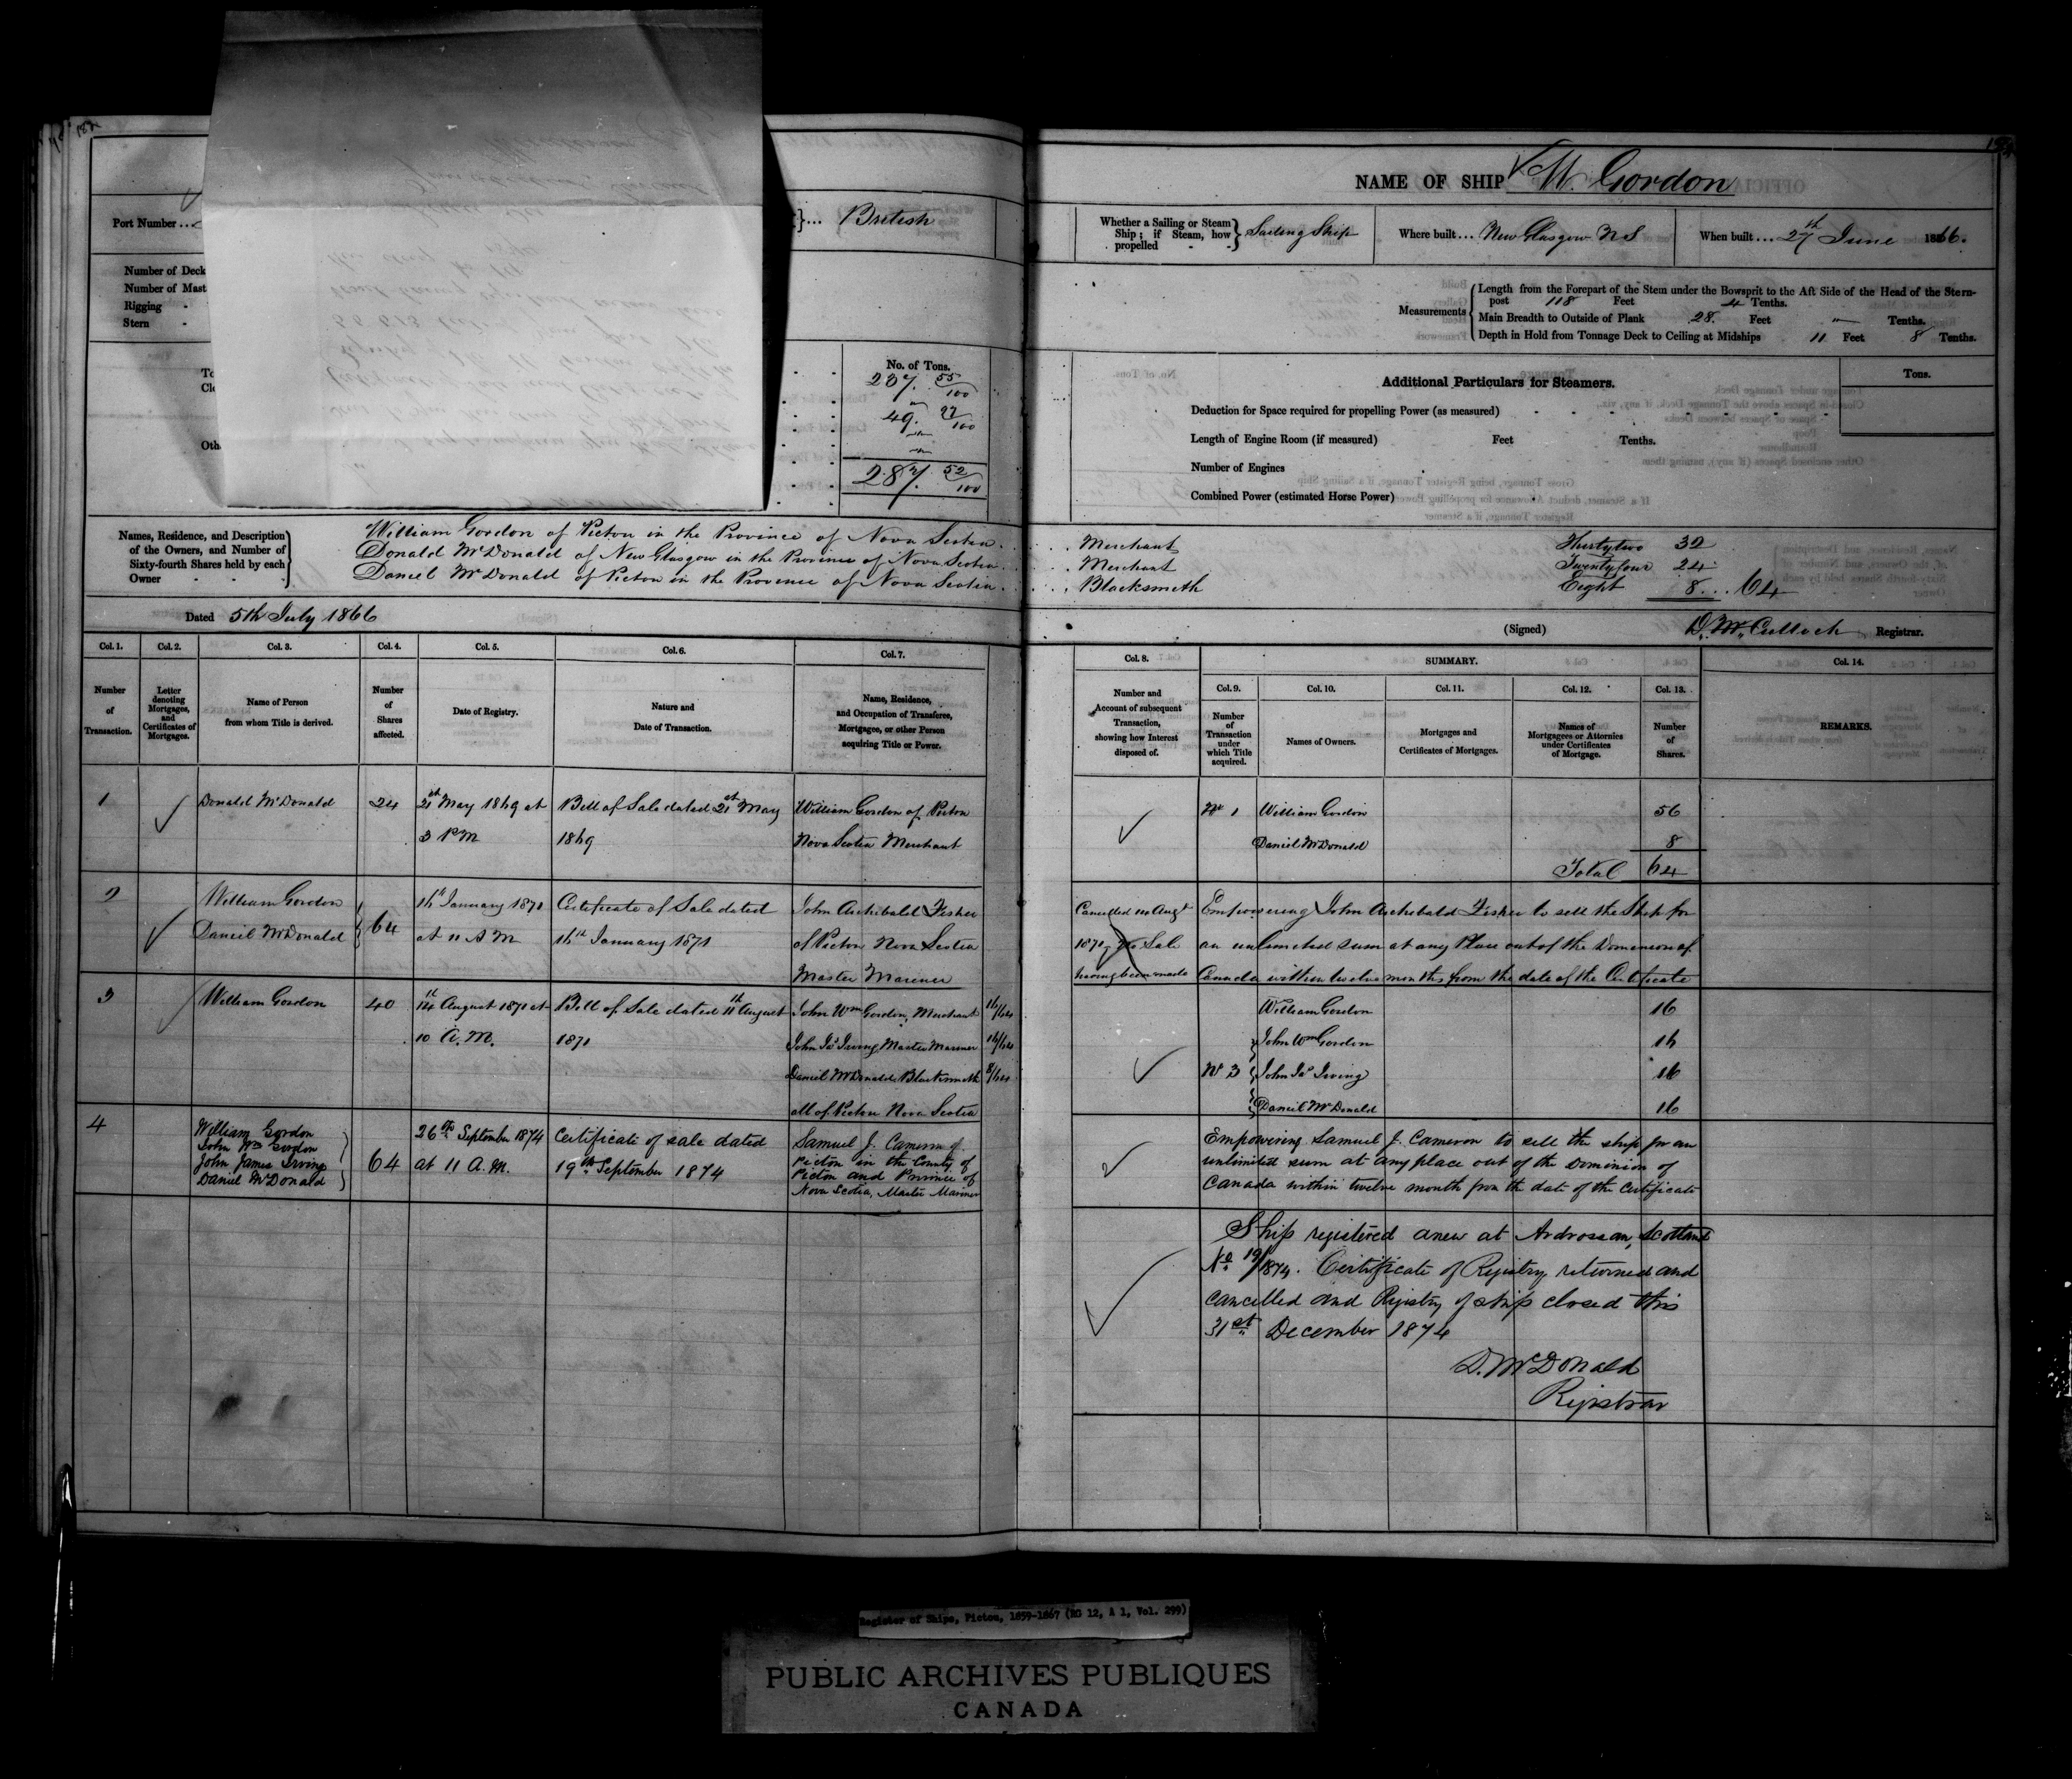 182
Port Number ...
Number of Deck
Number of Mast
Rigging -
Stern -
... British
No. of Tons.
237. 55/100
49. 97/100
287. 52/100
Names, Residence, and Description of the Owners, and Number of Sixty-fourth Shares held by each Owner - - -
William Gordon of Picton in the Province of Nova Scotia.
Donald McDonald of New Glasgow in the Province of Nova Scotia.
Daniel McDonald of Picton in the Province of Nova Scotia.
Dated 5th July 1866
Col. 1. Col. 2. Col. 3. Col. 4. Col. 5. Col. 6. Col. 7.
Number of Transaction.
Letter denoting Mortgages, and Certificates of Mortgages.
Name of Person from whom Title is derived.
Number of Shares affected.
Date of Registry.
Nature and Date of Transaction.
Name, Residence, and Occupation of Transferee, Mortgagee, or other Person acquiring Title or Power.
1 Donald McDonald 24 21st May 1869 at Bill of Sale dated 21st May William Gordon of Picton
3 PM 1869 Nova Scotia Merchant
2 William Gordon
Daniel McDonald 64
16th January 1871 Certificate of Sale dated John Archibald Fisher
at 11 A M 16th January 1871 of Picton Nova Scotia
Master Mariner
3 William Gordon 40 14th August 1871 at Bill of Sale dated 11th August John Wm Gordon, Merchant 16/64
10 A.M. 1871 John Jas Irving Master Mariner 16/64
Daniel McDonald Blacksmith 8/64
all of Picton Nova Scotia
4 William Gordon
John Wm Gordon
John James Irving
Daniel McDonald
64
26th September 1874 Certificate of sale dated
at 11 A.M. 19th September 1874
Samuel J. Cameron of
Picton in the County of
Picton and Province of
Nova Scotia, Master Mariner
NAME OF SHIP W. Gordon
Whether a Sailing or Steam Ship; if Steam, how propelled - - Sailing Ship
Where built ... New Glasgow N S
When built ... 27th June 1866.
Measurements
Length from the Forepart of the Stem under the Bowsprit to the Aft Side of the Head of the Stern-
post 118 Feet 4 Tenths.
Main Breadth to Outside of Plank 28. Feet " Tenths.
Depth in Hold from Tonnage Deck to Ceiling at Midships 11 Feet 8 Tenths.
Additional Particulars for Steamers.
Tons.
Deduction for Space required for propelling Power (as measured)
Length of Engine Room (if measured) Feet Tenths.
Number of Engines
Combined Power (estimated Horse Power)
Merchant Thirtytwo 32
Merchant Twentyfour 24
Blacksmith Eight 8 ... 64
(Signed) D. McCulloch Registrar.
Col. 8. SUMMARY. Col. 14.
Col. 9. Col. 10. Col. 11. Col. 12. Col. 13.
Number and Account of subsequent Transaction, showing how Interest disposed of.
Number of Transaction under which Title acquired.
Names of Owners.
Mortgages and Certificates of Mortgages.
Names of Mortgagees or Attornies under Certificates of Mortgage.
Number of Shares.
REMARKS.
No 1 William Gordon 56
Daniel McDonald 8
Total 64
Cancelled 14 Augt
1871, No Sale
having been made
Empowering John Archibald Fisher to sell the Ship for
an unlimited sum at any Place out of the Dominion of
Canada within twelve months from the date of the Certificate
William Gordon 16
John Wm Gordon 16
No 3 John Jas Irving 16
Daniel McDonald 16
Empowering Samuel J. Cameron to sell the ship for an
unlimited sum at any place out of the Dominion of
Canada within twelve month from the date of the Certificate
Ship registered anew at Ardrossan, Scotland
No 19/1874. Certificate of Registry returned and
cancelled and Registry of ship closed this
31st December 1874
D. McDonald
Registrar
Register of Ships, Pictou, 1859-1867 (RG 12, A 1, Vol. 299)
PUBLIC ARCHIVES PUBLIQUES
CANADA